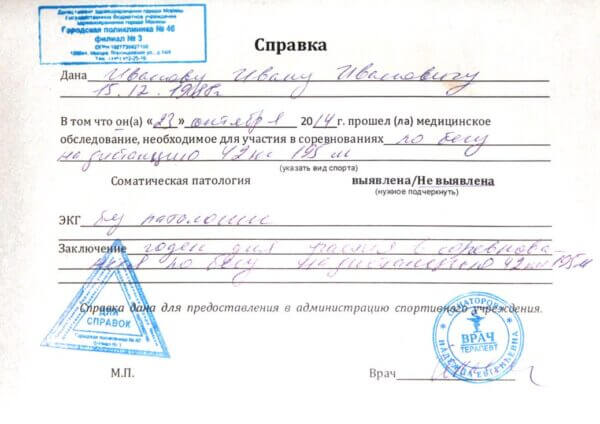 Департамент здравоохранения города Москвы
Государственное бюджетное учреждение
здравоохранения города Москвы
Городская поликлиника № 46
филиал № 3
Справка
Дана Иванову Ивану Ивановичу
15.12.1988г
В том что он(а) «23» сентября 2014 г. прошел (ла) медицинское
обследование, необходимое для участия в соревнованиях по бегу
на дистанцию 42 км 195 м
(указать вид спорта)
Соматическая патология выявлена/Не выявлена
(нужное подчеркнуть)
ЭКГ без патологии
Заключение годен для участия в соревнова-
ниях по бегу на дистанцию 42 км 195 м
Справка дана для предоставления в администрацию спортивного учреждения.
ДЛЯ
СПРАВОК
Городская поликлиника № 46
ВРАЧ
ТЕРАПЕВТ
НАДЕЖДА ЕВГЕНЬЕВНА
М.П. Врач